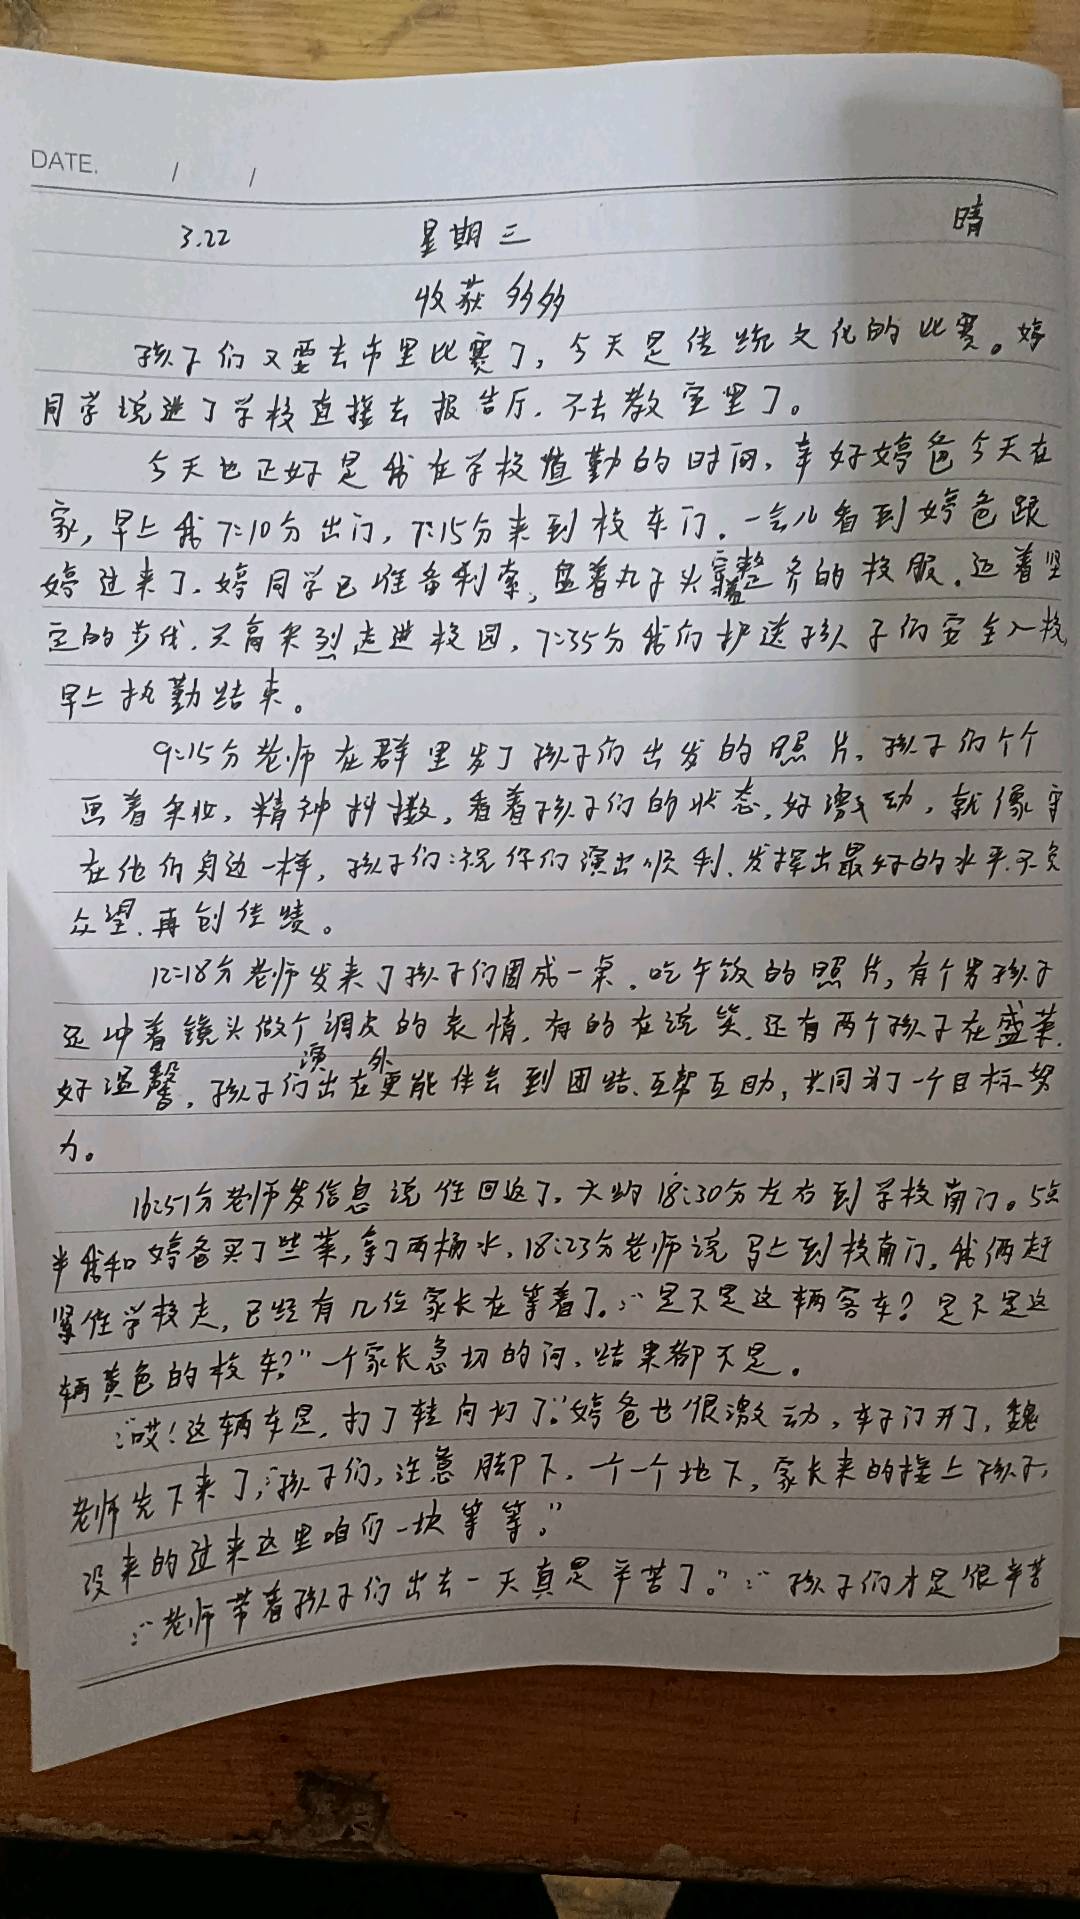 DATE. / /
3.22 星期三 晴
收获多多
孩子们又要去市里比赛了,今天是传统文化的比赛。婷
同学说进了学校直接去报告厅.不去教室里了。
今天也正好是我在学校值勤的时间,幸好婷爸今天在
家,早上我7:10分出门,7:15分来到校东门.一会儿看到婷爸跟
婷过来了.婷同学已准备利索,盘着丸子头穿整齐的校服.迈着坚
定的步伐.兴高采烈走进校园,7:35分我们护送孩子们安全入校
早上执勤结束。
9:15分老师在群里发了孩子们出发的照片,孩子们个个
画着彩妆,精神抖擞,看着孩子们的状态,好激动,就像守
在他们身边一样,孩子们:祝你们演出顺利、发挥出最好的水平.不负
众望.再创佳绩。
12:18分老师发来了孩子们围成一桌.吃午饭的照片,有个男孩子
还冲着镜头做个调皮的表情,有的在说笑.还有两个孩子在盛菜.
好温馨,孩子们出演在外更能体会到团结.互帮互助,共同为了一个目标努
力。
16:51分老师发信息说往回返了.大约18:30分左右到学校南门。5点
半我和婷爸买了些菜,拿了两桶水,18:23分老师说马上到校南门,我俩赶
紧往学校走,已经有几位家长在等着了.:“是不是这辆客车?是不是这
辆黄色的校车?”一个家长急切的问,结果都不是。
:“哎!这辆车是,打了转向灯了.”婷爸也很激动,车子门开了,魏
老师先下来了,:“孩子们,注意脚下,一个一个地下,家长来的接上孩子,
没来的过来这里咱们一块等等。”
:“老师带着孩子们出去一天真是辛苦了。”:“孩子们才是很辛苦